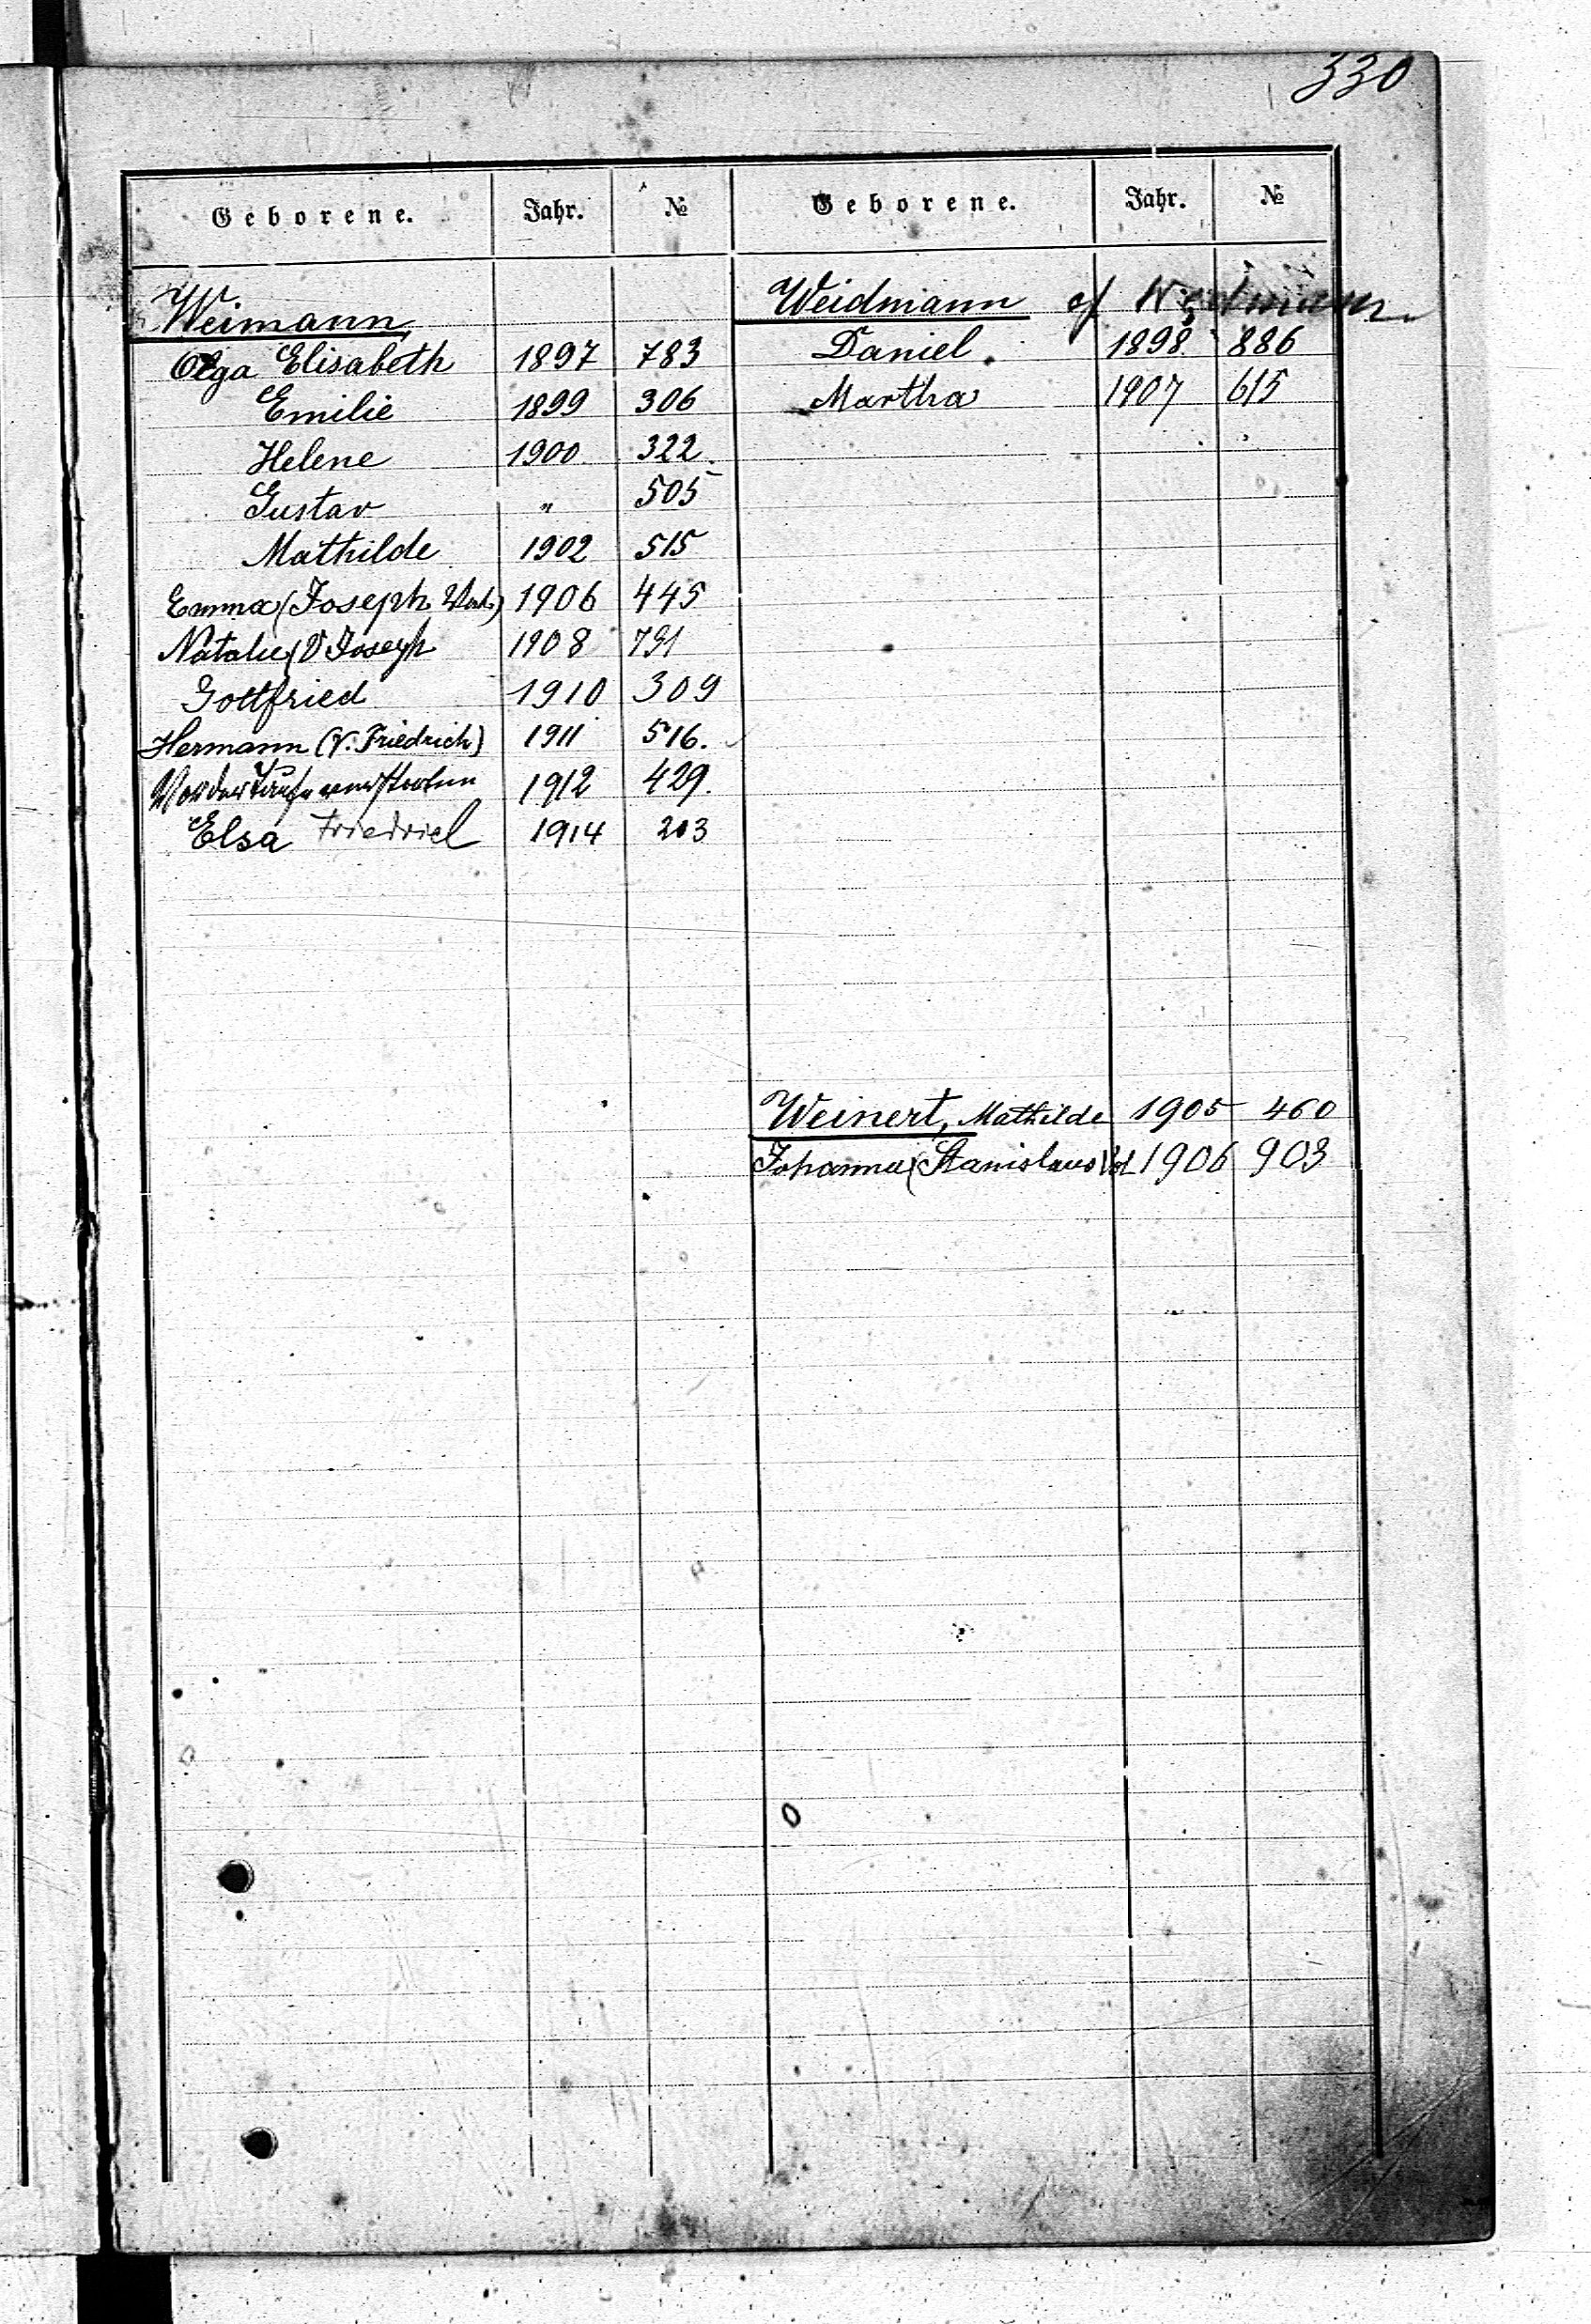 330
Geborene. Jahr. № Geborene. Jahr. №
Weimann
Olga Elisabeth 1897 783
Emilie 1899 306
Helene 1900 322
Gustav " 505
Mathilde 1902 515
Emma (Joseph 1906 445
Natalie (V Joseph 1908 791
Gottfried 1910 309
Hermann (V. Friedrich) 1911 516.
Vor der Taufe verstorben 1912 429.
Elsa Friedrich 1914 203
Weidmann cf
Daniel. 1898 886
Martha 1907 615
Weinert, Mathilde 1905 460
Johanna (Stanislaus 1906 903